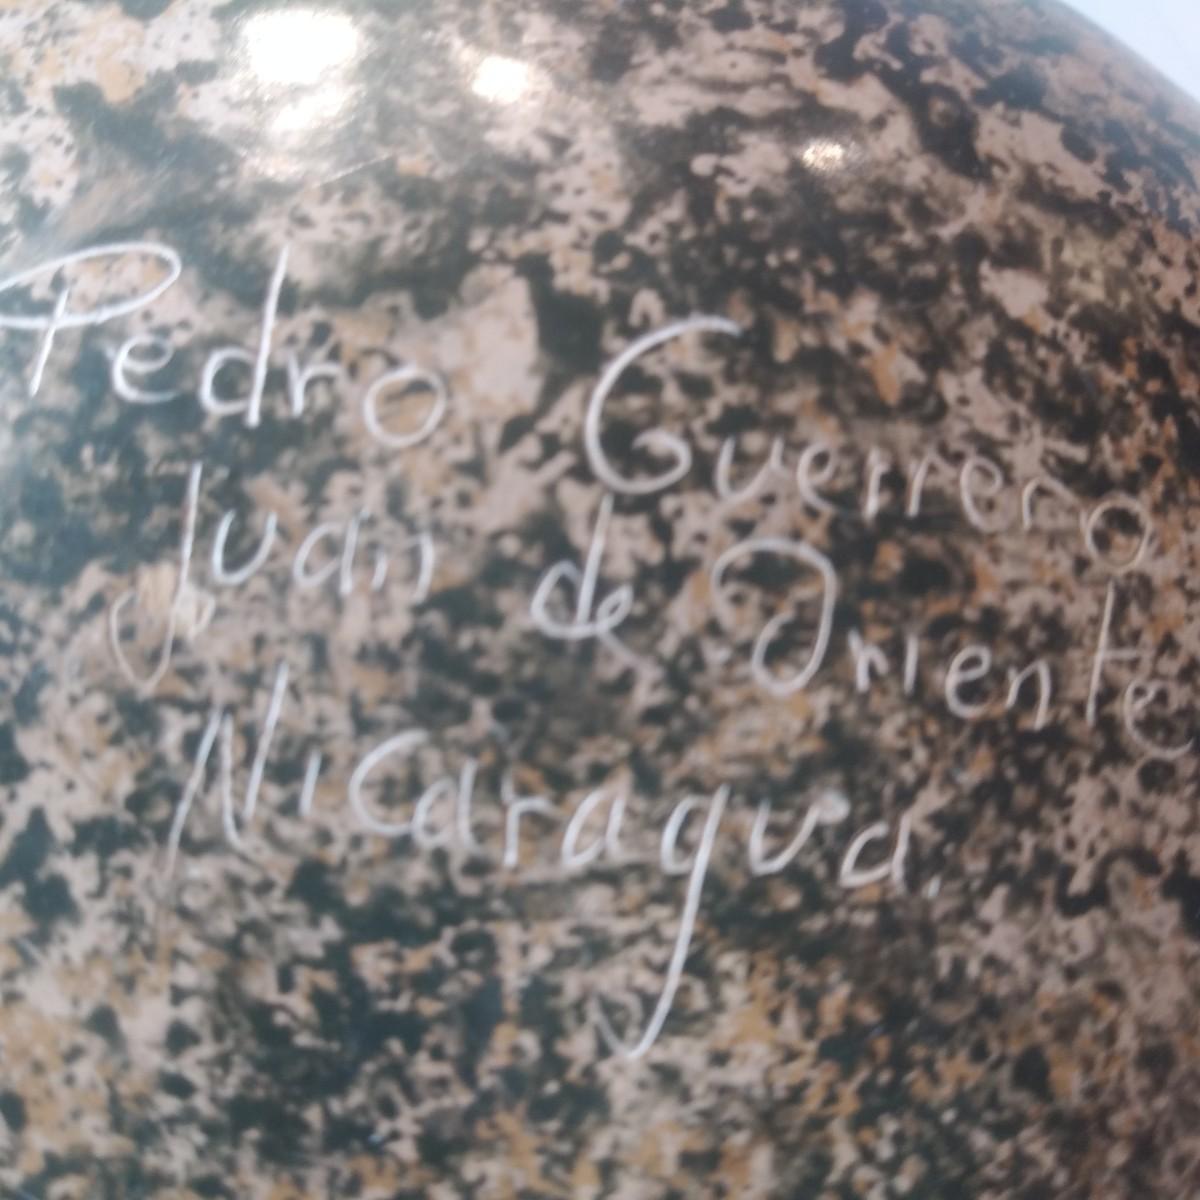 Pedro Guerrero
Juan de Oriente
Nicaragua.